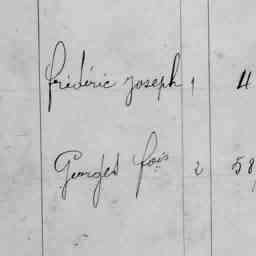 frédéric Joseph 1 4
Georges fois 2 58